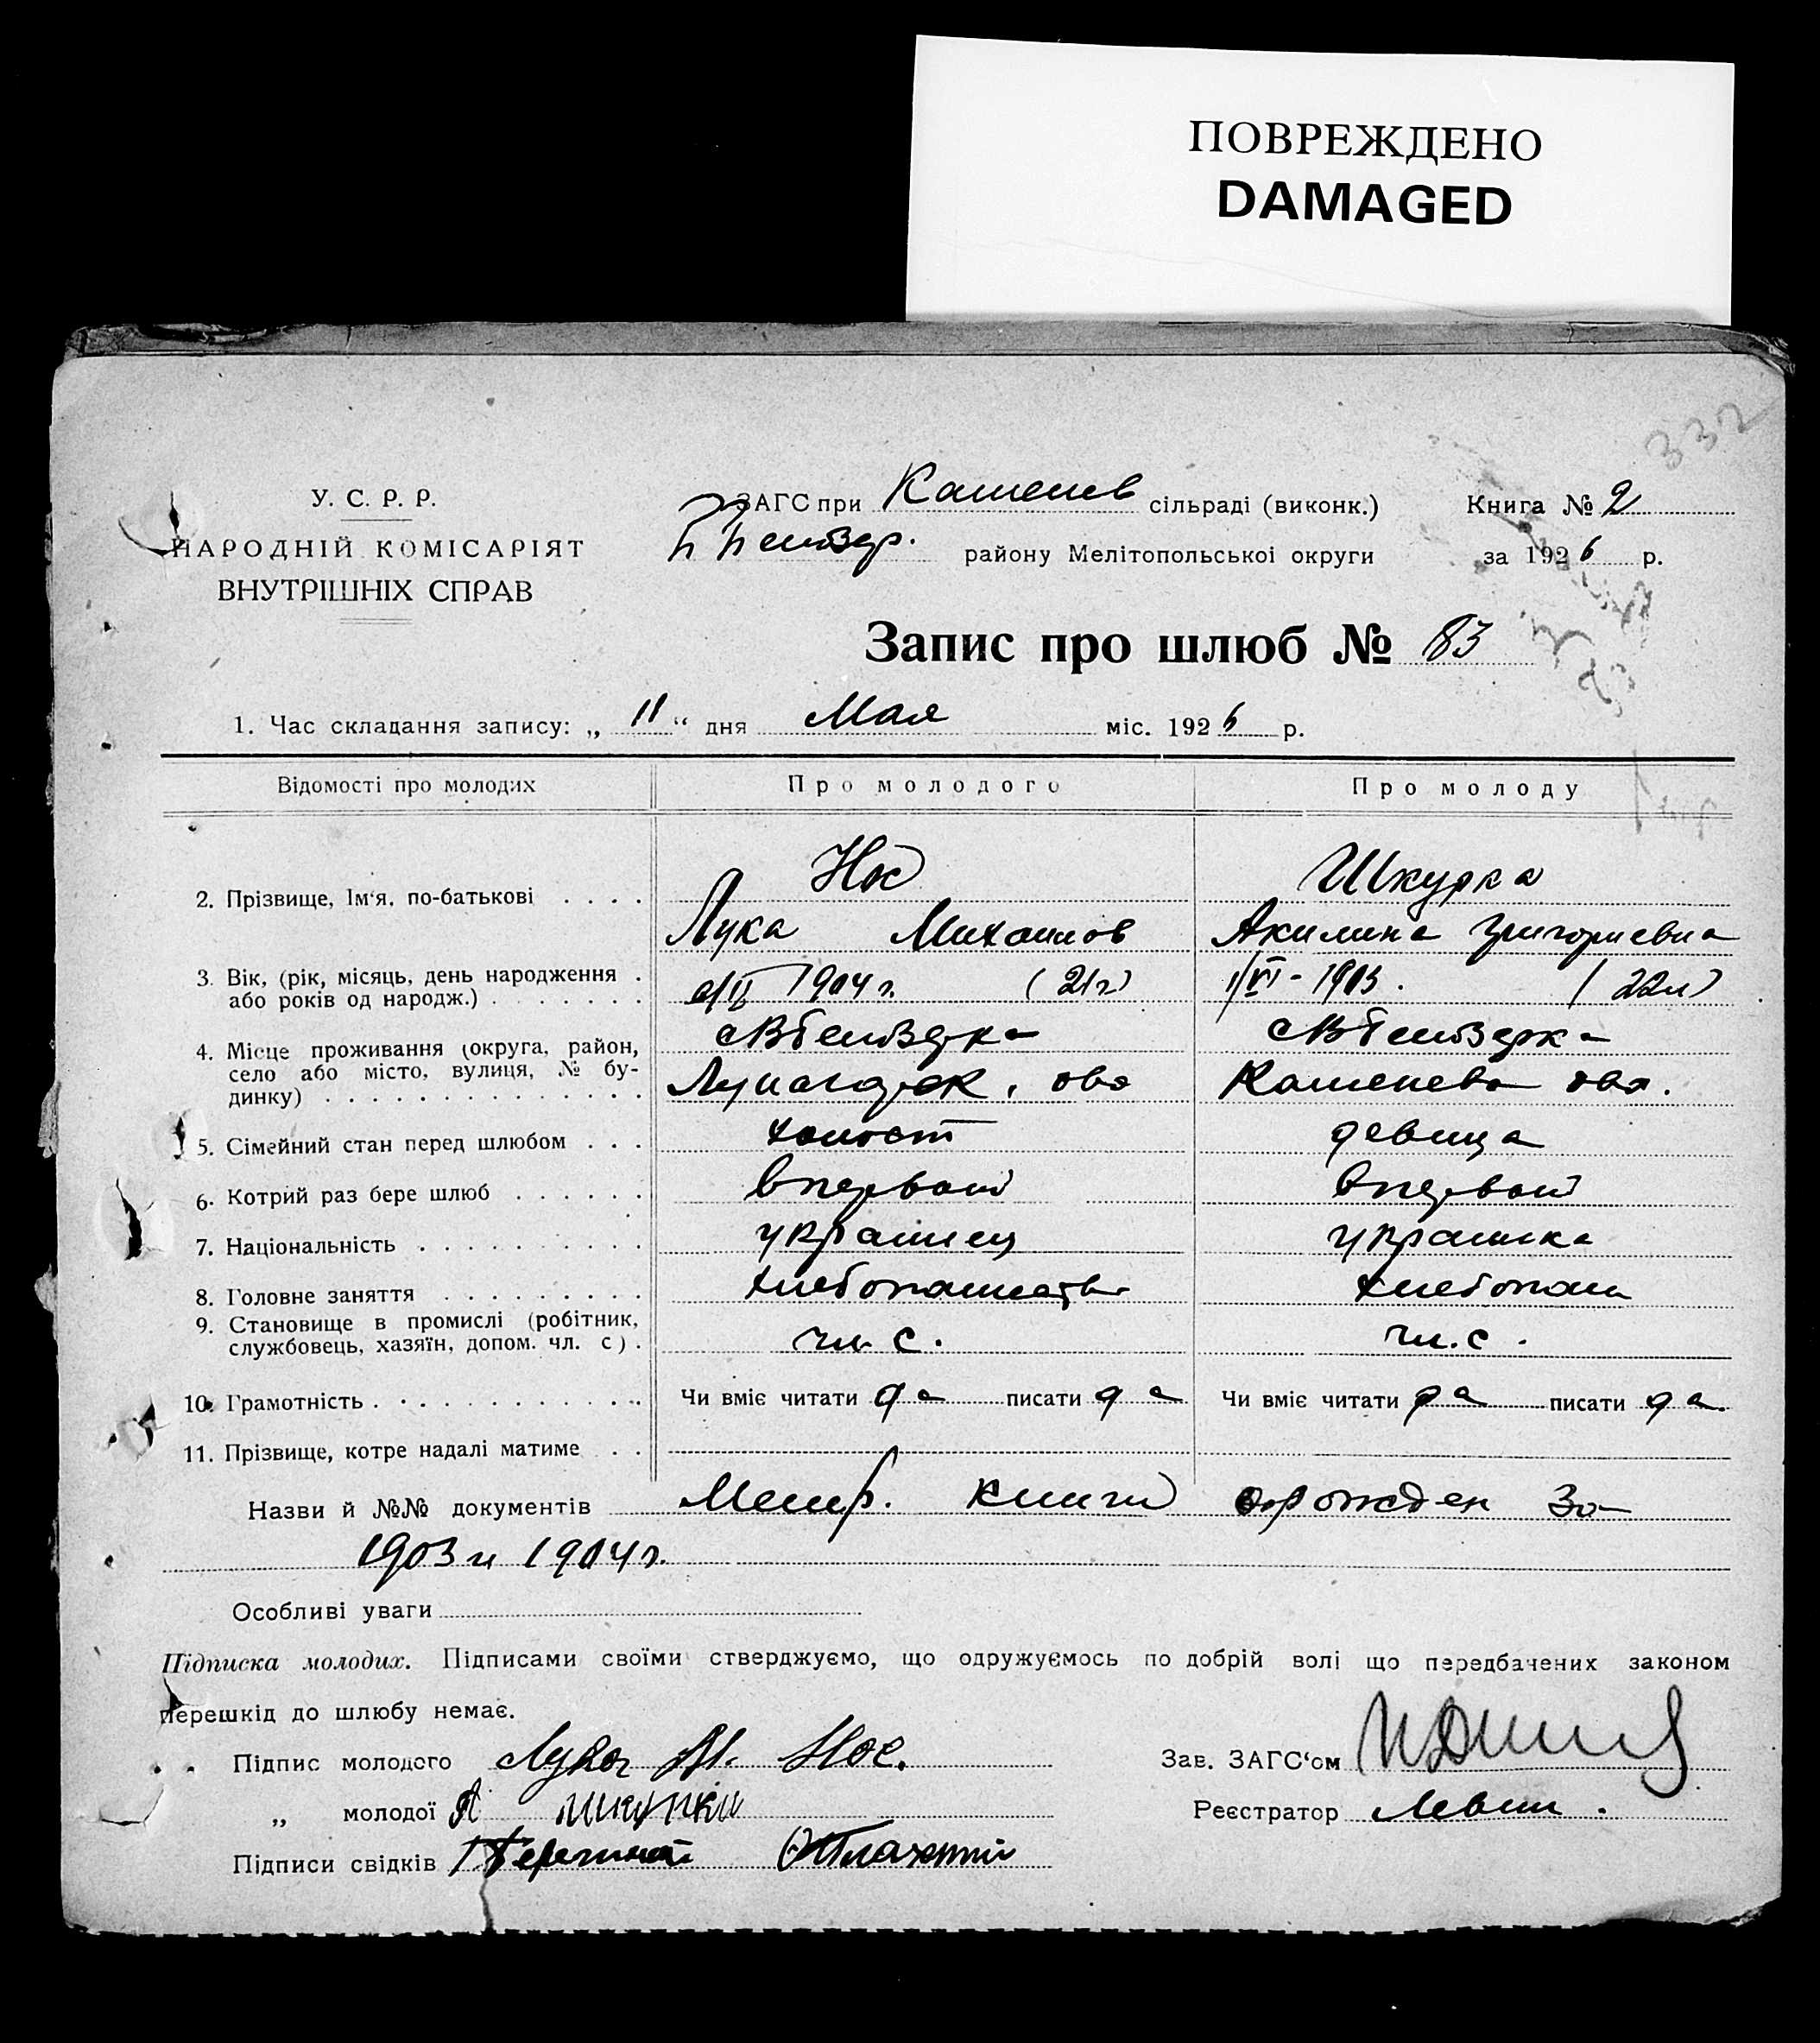 ПОВРЕЖДЕНО
DAMAGED
332
У. С. Р. Р.
НАРОДНІЙ КОМІСАРІЯТ
ВНУТРІШНІХ СПРАВ
ЗАГС при Каменев сільраді (виконк.)
району Мелітопольської округи
Книга № 2
за 1926 р.
Запис про шлюб № 83
1. Час складання запису: „ 11 “ дня Мая міс. 1926 р.
Відомості про молодих Про молодого Про молоду
2. Прізвище, Ім‘я, по-батькові . . . . Нос Шкурка
Лука Михаилов Акилина Григориевна
3. Вік, (рік, місяць, день народження . 1904 г. (21г) 1/VI - 1903. (22л)
або років од народж.) . . . . . . .
4. Місце проживання (округа, район, село або місто, вулиця, № будинку) . . . . . . . . . . . . . .
Каменева
5. Сімейний стан перед шлюбом . . . холост девица
6. Котрий раз бере шлюб . . . . . . впервой впервой
7. Національність . . . . . . . . . . украинец украинка
8. Головне заняття . . . . . . . . . хлебопашество хлебопаш
9. Становище в промислі (робітник, службовець, хазяїн, допом. чл. с) . чл. с. чл. с.
10. Грамотність . . . . . . . . . . . . Чи вміє читати да писати да Чи вміє читати да писати да.
11. Прізвище, котре надалі матиме . .
Назви й №№ документів Метр. книги о рожден за
1903 и 1904 г.
Особливі уваги
Підписка молодих. Підписами своїми стверджуємо, що одружуємось по добрій волі що передбачених законом
перешкід до шлюбу немає.
Підпис молодого Лука М. Нос.
Зав. ЗАГС‘ом
„ молодої А Шкурка
Реєстратор Левин.
Підписи свідків